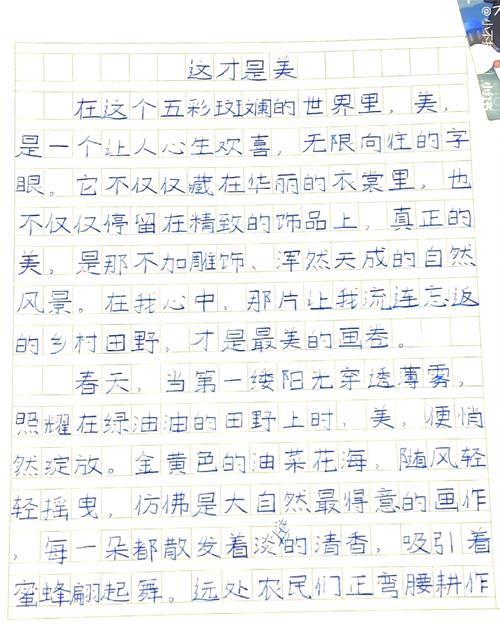 这才是美
在这个五彩斑斓的世界里，美，
是一个让人心生欢喜，无限向往的字
眼。它不仅仅藏在华丽的衣裳里，也
不仅仅停留在精致的饰品上，真正的
美，是那不加雕饰、浑然天成的自然
风景。在我心中，那片让我流连忘返
的乡村田野，才是最美的画卷。
春天，当第一缕阳光穿透薄雾，
照耀在绿油油的田野上时，美，便悄
然绽放。金黄色的油菜花海，随风轻
轻摇曳，仿佛是大自然最得意的画作
，每一朵都散发着淡淡的清香，吸引着
蜜蜂翩翩起舞。远处农民们正弯腰耕作